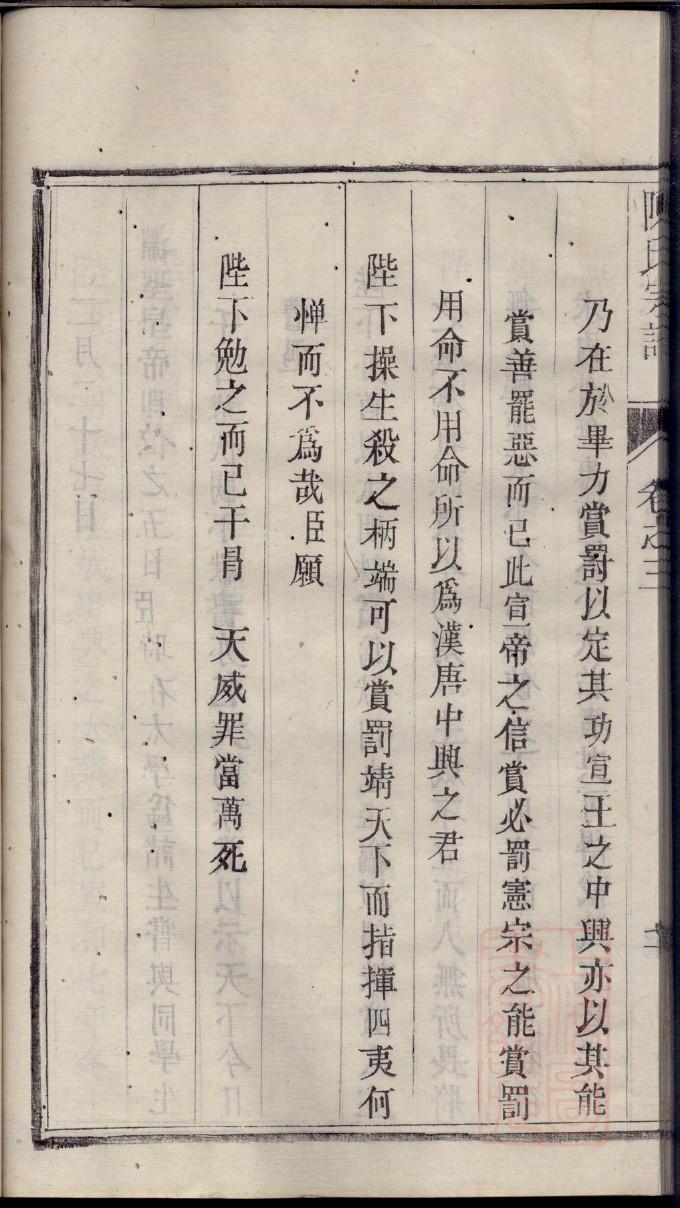 陳氏宗譜 卷之三
乃在於畢力賞罰以定其功宣王之中興亦以其能
賞善罷惡而已此宣帝之信賞必罰憲宗之能賞罰
用命不用命所以爲漢唐中興之君
陛下操生殺之柄端可以賞罰靖天下而指揮四夷何
憚而不爲哉臣願
陛下勉之而已干冐 天威罪當萬死